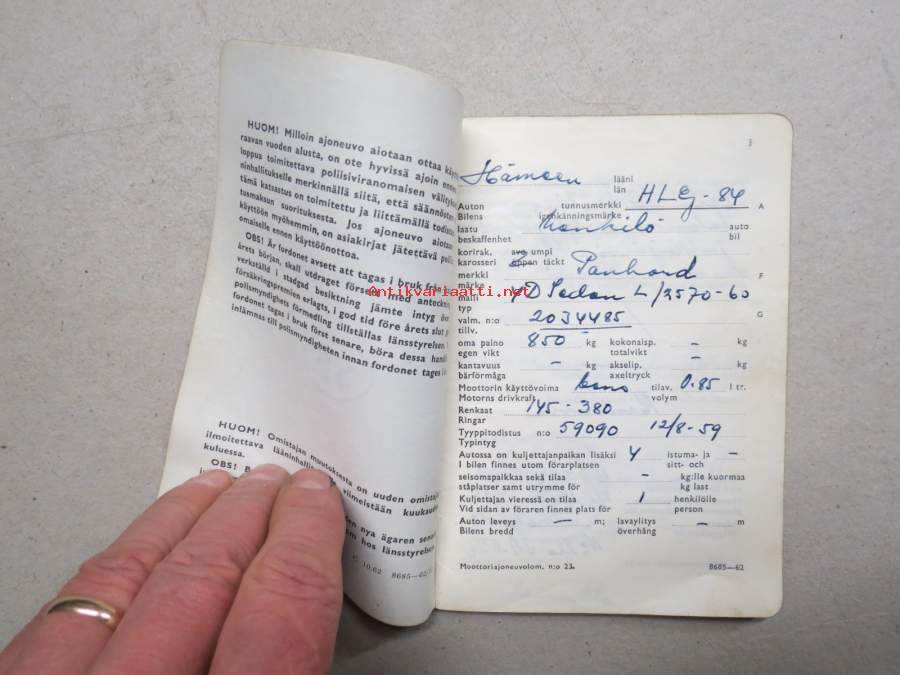 HUOM! Milloin ajoneuvo aiotaan ottaa käytt
raavan vuoden alusta, on ote hyvissä ajoin ennen
loppua toimitettava poliisiviranomaisen välityks
ninhallitukselle merkinnällä siitä, että säännöster
tämä katsastus on toimitettu ja liittämällä todistus
tusmaksun suorituksesta. Jos ajoneuvo aiotaan
käyttöön myöhemmin, on asiakirjat jätettävä poliisi
omaiselle ennen käyttöönottoa.
OBS! Är fordonet avsett att tagas i bruk från
årets början, skall utdraget försett med anteckning
verkställd i stadgad besiktning jämte intyg över
försäkringspremien erlagts, i god tid före årets slut
polismyndighets förmedling tillställas länsstyrelsen.
fordonet tagas i bruk först senare, böra dessa handl
inlämnas till polismyndigheten innan fordonet tages i
HUOM! Omistajan muutoksesta on uuden omistaj
ilmoitettava lääninhalli viimeistään kuukaude
kuluessa.
OBS!
den nya ägaren senast
hos länsstyrelsen
10.62 8685—62/
3
Hämeen lääni
län
Auton tunnusmerkki HLG-84 A
Bilens igenkänningsmärke
laatu Henkilö auto
beskaffenhet bil
korirak. avo umpi
karosseri öppen täckt
merkki Panhard F
märke
malli PD Sedan L/3570-60
typ
valm. n:o 2034485 G
tillv.
oma paino 850 kg kokonaisp. - kg
egen vikt totalvikt
kantavuus - kg akselip. - kg
bärförmåga axeltryck
Moottorin käyttövoima bens tilav. 0.85 ltr.
Motorns drivkraft volym
Renkaat 145-380
Ringar
Tyyppitodistus n:o 59090 12/8-59
Typintyg
Autossa on kuljettajanpaikan lisäksi 4 istuma- ja -
I bilen finnes utom förarplatsen sitt- och
seisomapaikkaa sekä tilaa - kg:lle kuormaa
ståplatser samt utrymme för kg last
Kuljettajan vieressä on tilaa 1 henkilölle
Vid sidan av föraren finnes plats för person
Auton leveys — m; lavaylitys — m
Bilens bredd överhäng
Moottoriajoneuvolom. n:o 23. 8685—62
Antikvariaatti.net